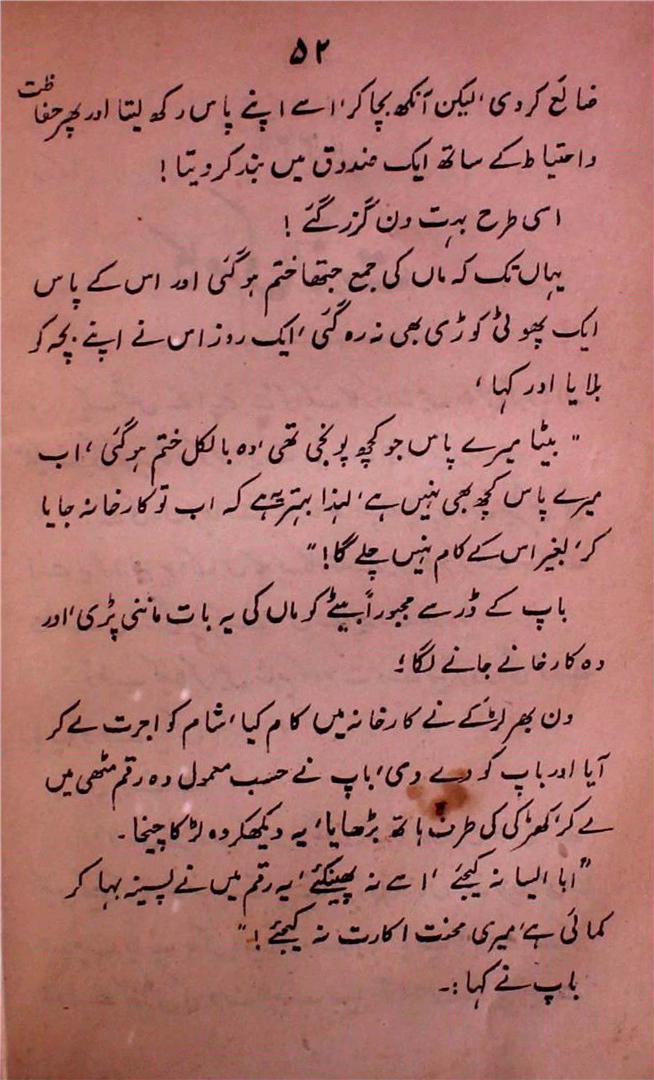 ۵۲
ضائع کر دی، لیکن آنکھ بچا کر، اسے اپنے پاس رکھ لیتا اور پھر حفاظت
و احتیاط کے ساتھ ایک صندوق میں بند کر دیتا!
اسی طرح بہت دن گزر گئے!
یہاں تک کہ ماں کی جمع جتھا ختم ہو گئی اور اس کے پاس
ایک پھوٹی کوڑی بھی نہ رہ گئی، ایک روز اس نے اپنے بچہ کو
بلایا اور کہا،
"بیٹا میرے پاس جو کچھ پونجی تھی، وہ بالکل ختم ہو گئی، اب
میرے پاس کچھ بھی نہیں ہے، لہذا بہتر یہ ہے کہ اب تو کارخانہ جایا
کر، بغیر اس کے کام نہیں چلے گا!"
باپ کے ڈر سے مجبوراً بیٹے کو ماں کی یہ بات ماننی پڑی، اور
وہ کارخانے جانے لگا؛
دن بھر لڑکے نے کارخانہ میں کام کیا، شام کو اجرت لے کر
آیا اور باپ کو دے دی، باپ نے حسب معمول وہ رقم مٹھی میں
لے کر، کھڑکی کی طرف ہاتھ بڑھایا، یہ دیکھکر وہ لڑکا چیخا۔
"ابا ایسا نہ کیجئے، اسے نہ پھینکئے، یہ رقم میں نے پسینہ بہا کر
کمائی ہے، میری محنت اکارت نہ کیجئے!"
باپ نے کہا:۔